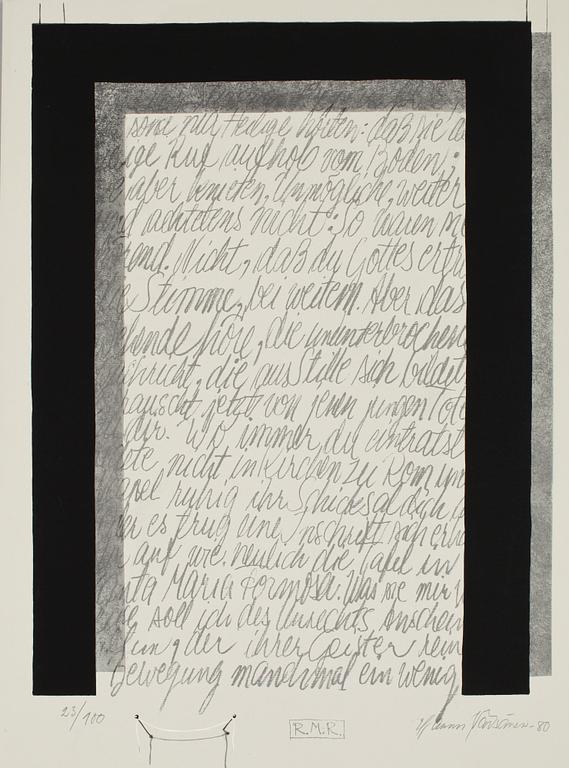 sonst nur Heilige hörten: daß sie d
ige Ruf aufhob vom Boden;
aber knieten, Unmögliche, weiter
nd achtetens nicht: So waren
end. Nicht, daß du Gottes ertr
e Stimme, bei weitem. Aber das
ehende höre, die ununterbrochene
chricht, die aus Stille sich bildet
rauscht jetzt von jenen jungen Tote
dir. Wo immer du eintratst
ete nicht in Kirchen zu Rom un
apel ruhig ihr Schicksal dich
er es trug eine nschrift sich erh
auf wie neulich die Tafel in
nta Maria Formosa. Was sie mir
e soll ich des Unrechts Anschein
un, der ihrer Geister rein
Bewegung manchmal ein wenig
23/100
R.M.R.
80